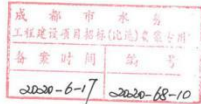 成都市水务
工程建设项目招标(比选)备案专用
备案时间 编号
2020-6-17 2020-68-10